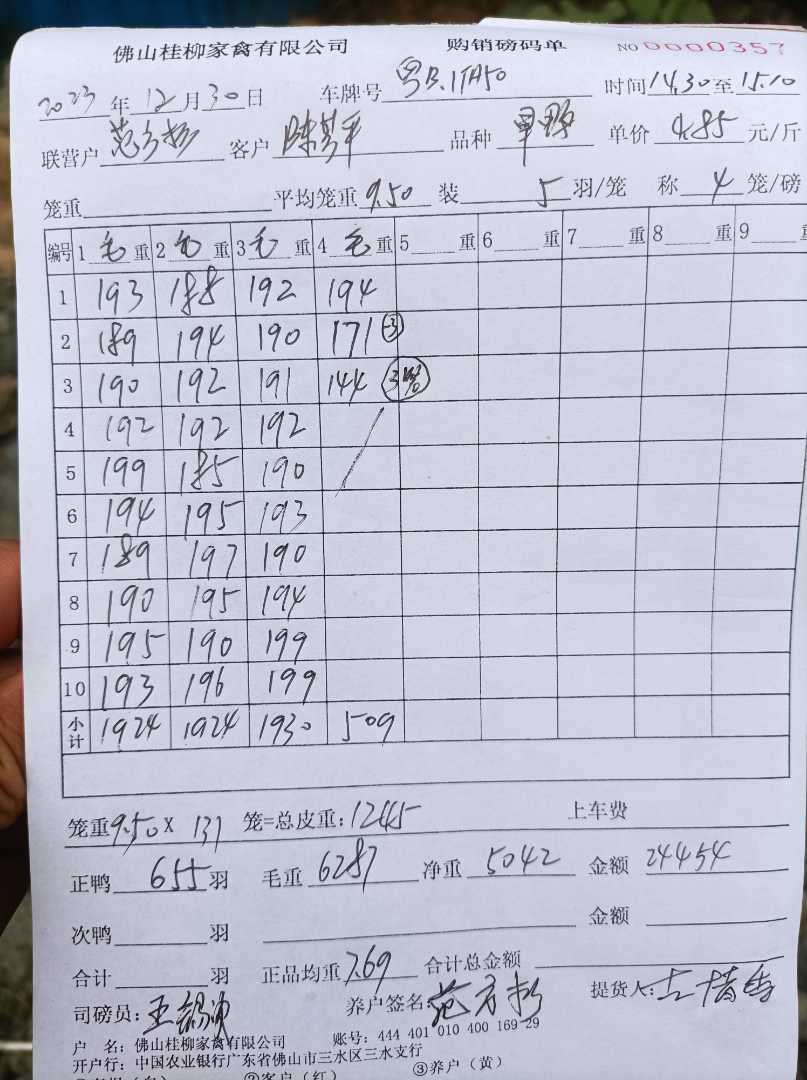 佛山桂柳家禽有限公司 购销磅码单 NO 0000357
2023年 12月30日 车牌号 粤B.1TA50 时间14.30至15.10
联营户 客户 品种 单价 4.85 元/斤
笼重 平均笼重 9.50 装 5 羽/笼 称 4 笼/磅
编号 1毛重 2毛重 3毛重 4毛重 5 重 6 重 7 重 8 重 9 重
1 193 188 192 194
2 189 194 190 171 ③
3 190 192 191 144
4 192 192 192
5 199 185 190
6 194 195 193
7 189 197 190
8 190 195 194
9 195 190 199
10 193 196 199
小计 1924 1924 1930 509
笼重9.50X 131 笼=总皮重:1245 上车费
正鸭 655羽 毛重 6287 净重 5042 金额 24454
次鸭 羽 金额
合计 羽 正品均重 7.69 合计总金额
司磅员: 养户签名: 提货人:
户 名: 佛山桂柳家禽有限公司 账号: 444 401 010 400 169 29
开户行: 中国农业银行广东省佛山市三水区三水支行
②客户(红) ③养户(黄)